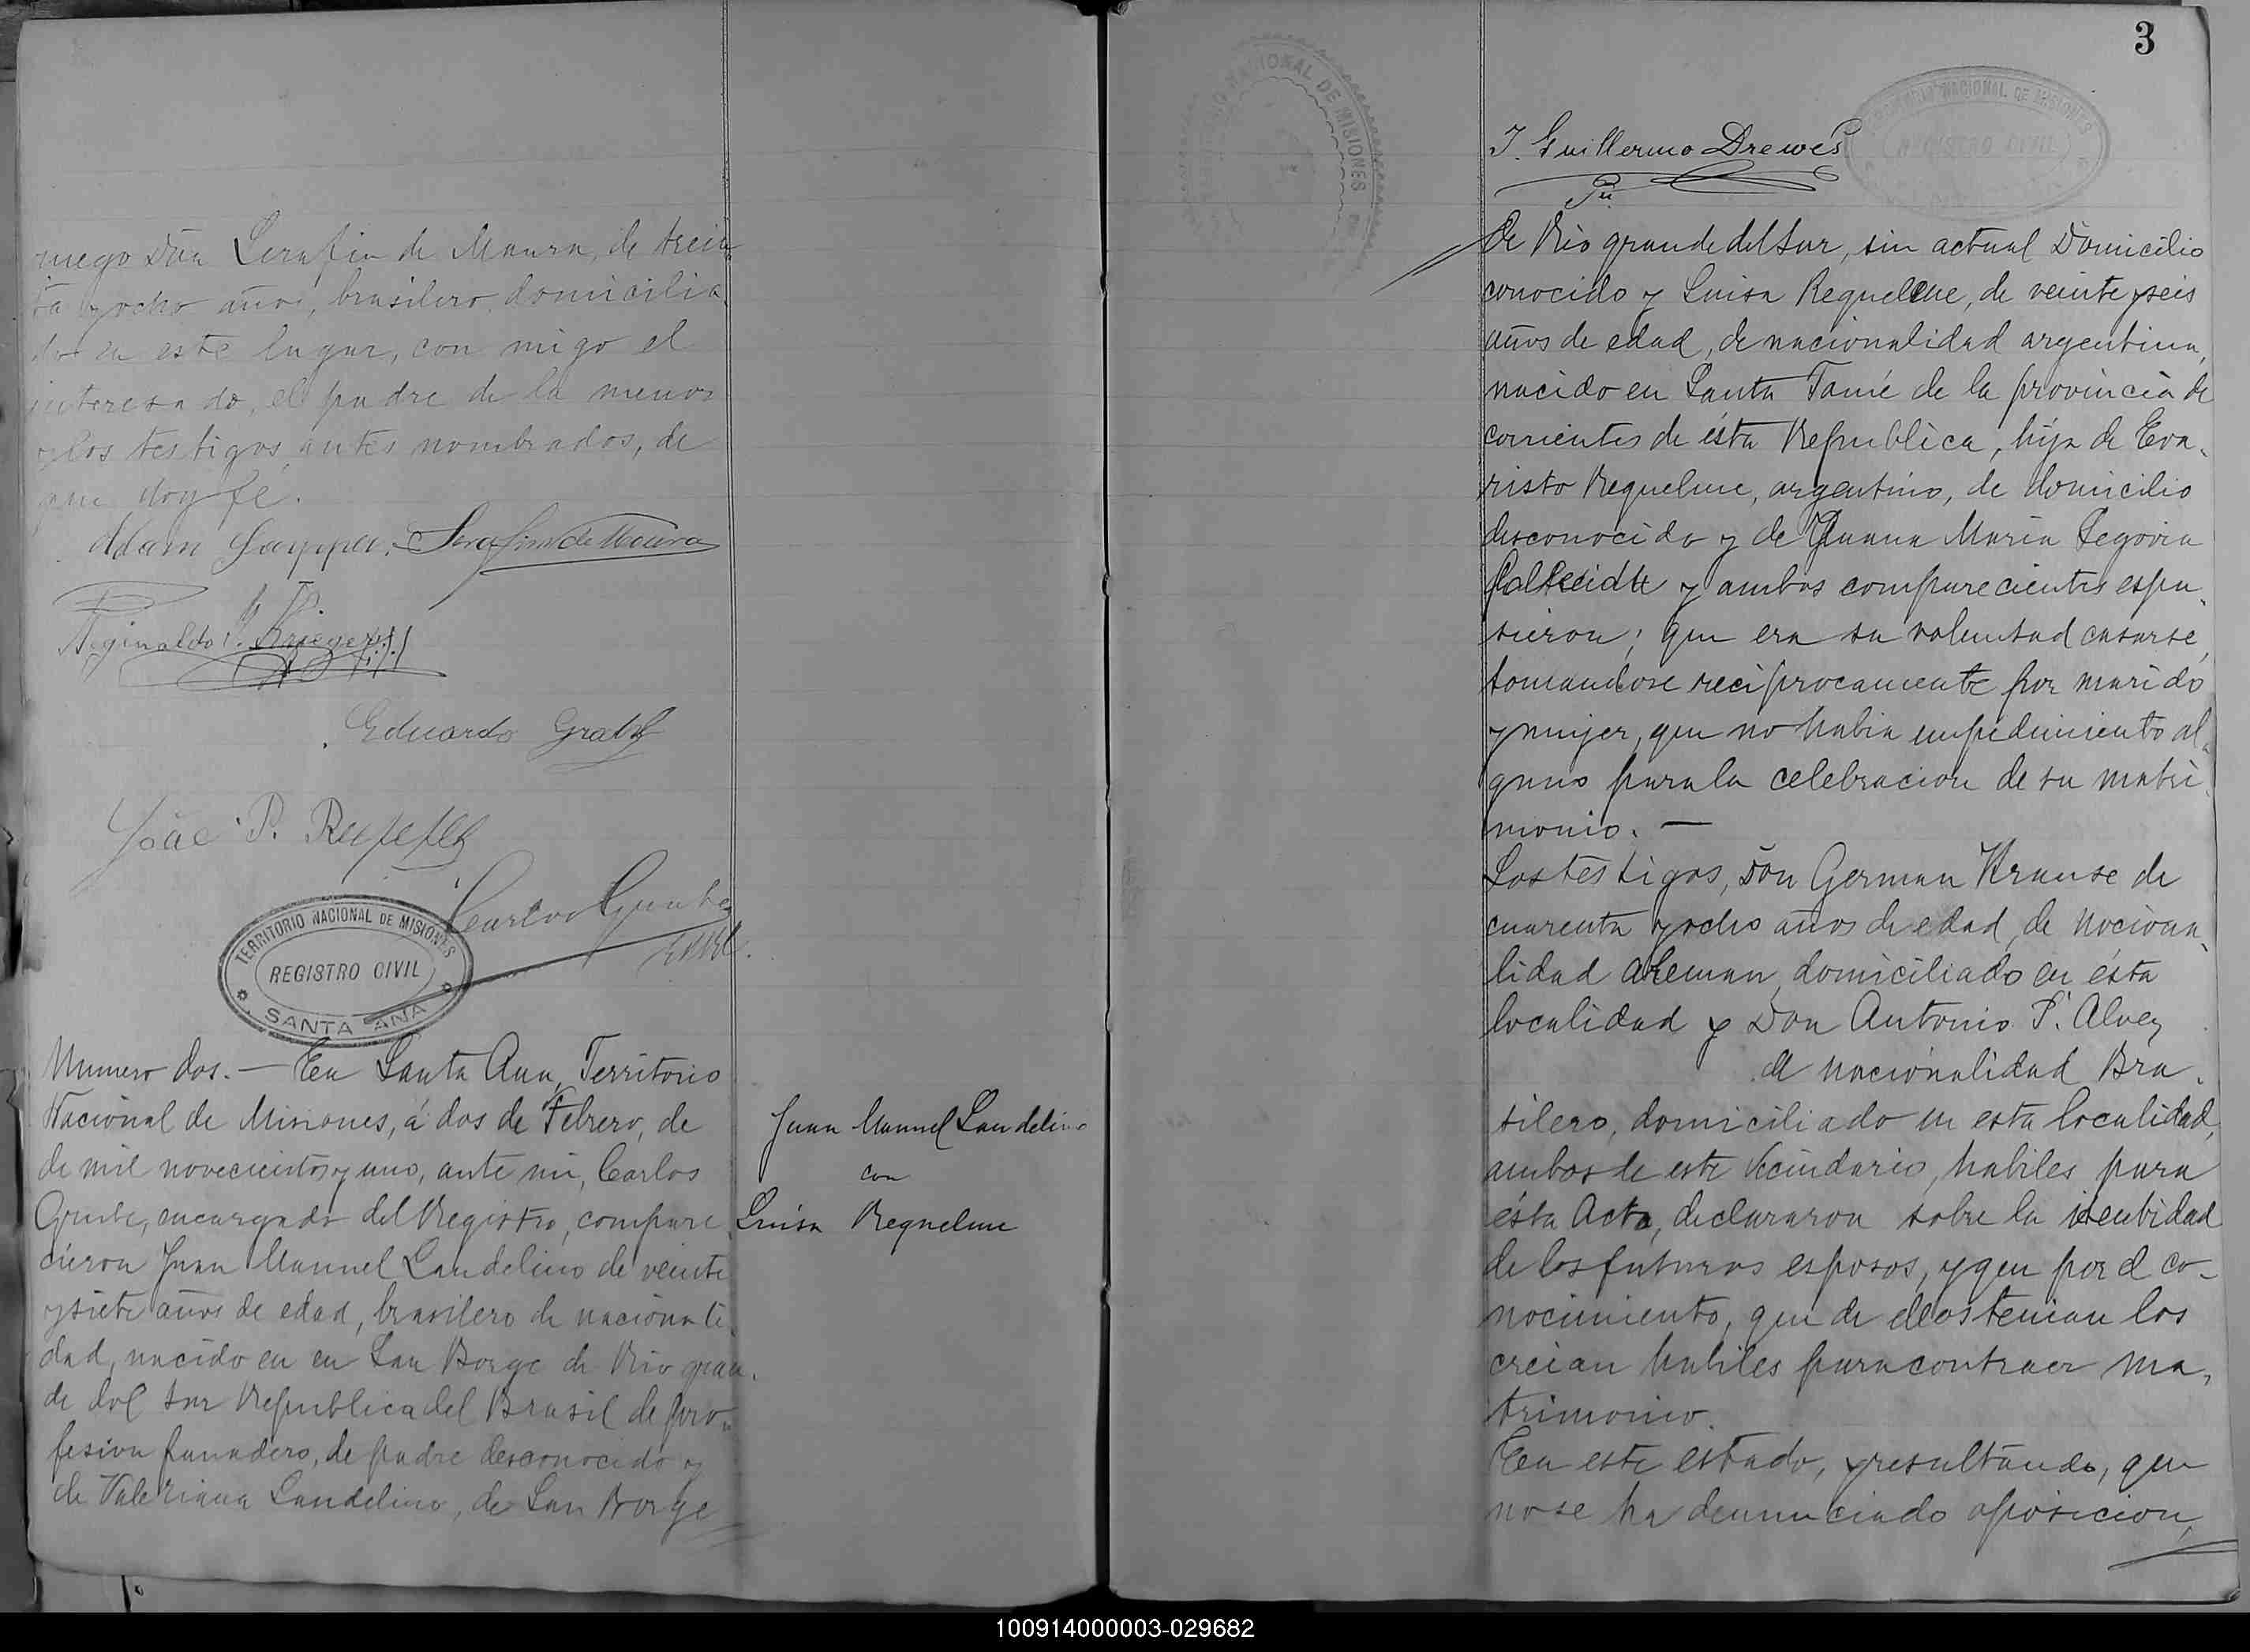 ruego Dón Serafin de Maura, de trein
ta y ocho años, brasilero, domicilia
do en este lugar, con migo el
interesado, el padre de la menor
y los testigos antes nombrados, de
que doy fe.
Adam Serafim de Moura
Reginaldo Krieger
Eduardo
João P.
Carlos Grube
TERRITORIO NACIONAL DE MISIONES
REGISTRO CIVIL
SANTA ANA
Numero dos. — En Santa Ana, Territorio
Nacional de Misiones, á dos de Febrero, de
de mil novecientos y uno, ante mi, Carlos
Grube, encargado del Registro, compare
cieron Juan Manuel Landelino de veinte
y siete años de edad, brasilero de nacionali
dad, nacido en en San Borge de Rio gran
de del sur Republica del Brasil de pro
fesion panadero, de padre desconocido y
de Valeriana Landelino, de San Borge
Juan Manuel Landelino
con
Luisa Requelme
3
NACIONAL DE MISIONES
TERRITORIO NACIONAL DE MISIONES
REGISTRO CIVIL
J. Guillermo Drewes
de Rio grande del sur, sin actual Domicilio
conocido y Luisa Requelme, de veinte y seis
años de edad, de nacionalidad argentina,
nacido en Santa Tomé de la provincia de
corrientes de ésta Republica, hija de Eva
risto Requelme, argentino, de domicilio
desconocido y de Juana Maria Segovia
y ambos comparecientes espu
sieron; que era su voluntad casarse,
tomandose reciprocamente por marido
y mujer, que no habia impedimiento al
guno para la celebracion de su matri
monio. —
Los testigos, Dón German Krause de
cuarenta y ocho años de edad, de nociona
lidad aleman, domiciliado en ésta
localidad y Don Antonio P. Alvez
de nacionalidad Bra
silero, domiciliado en esta localidad,
ambos de este Vecindario, habiles para
ésta Acta, declararon sobre la identidad
de los futuros esposos, y que por el co-
nocimiento, que de ellos tenian los
creian habiles para contraer ma
trimonio.
En este estado, y resultando, que
no se ha denunciado oposicion,
100914000003-029682